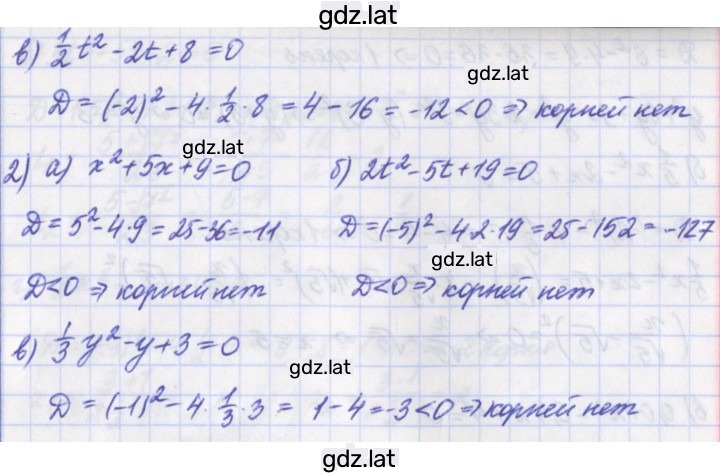 gdz.lat
в) 1/2 t² - 2t + 8 = 0
gdz.lat
D = (-2)² - 4 · 1/2 · 8 = 4 - 16 = -12 < 0 ⇒ корней нет
gdz.lat
2) а) x² + 5x + 9 = 0 б) 2t² - 5t + 19 = 0
D = 5² - 4·9 = 25-36 = -11 D = (-5)² - 4·2·19 = 25 - 152 = -127
gdz.lat
D<0 ⇒ корней нет D<0 ⇒ корней нет
в) 1/3 y² - y + 3 = 0
gdz.lat
D = (-1)² - 4 · 1/3 · 3 = 1 - 4 = -3 < 0 ⇒ корней нет
gdz.lat